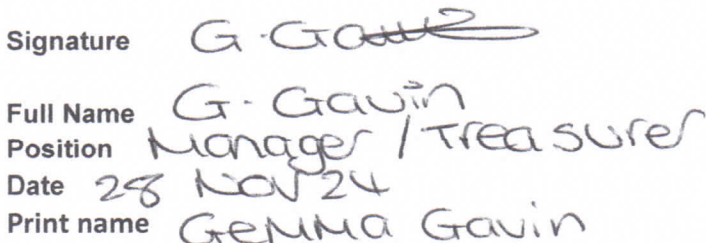 Signature G. Gavin
Full Name G. Gavin
Position Manager / Treasurer
Date 28 NOV 24
Print name Gemma Gavin